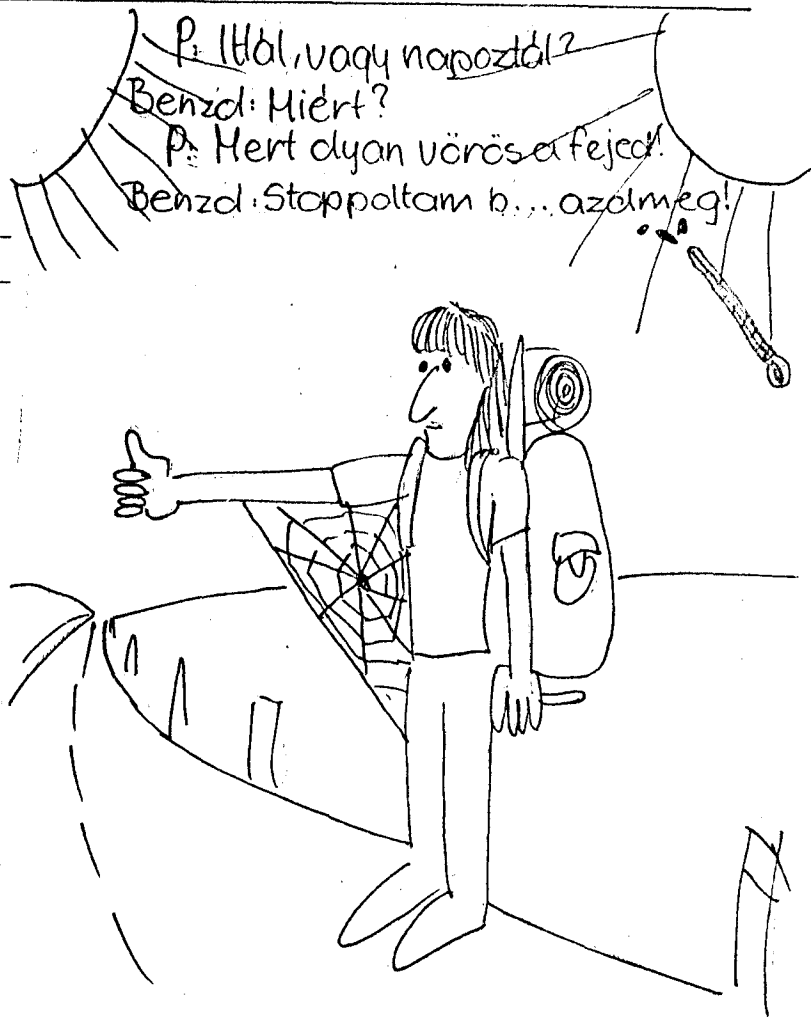 P: Ittál, vagy napoztál?
Benzol: Miért?
P: Mert olyan vörös a fejed!
Benzol: Stoppoltam b... azdmeg!